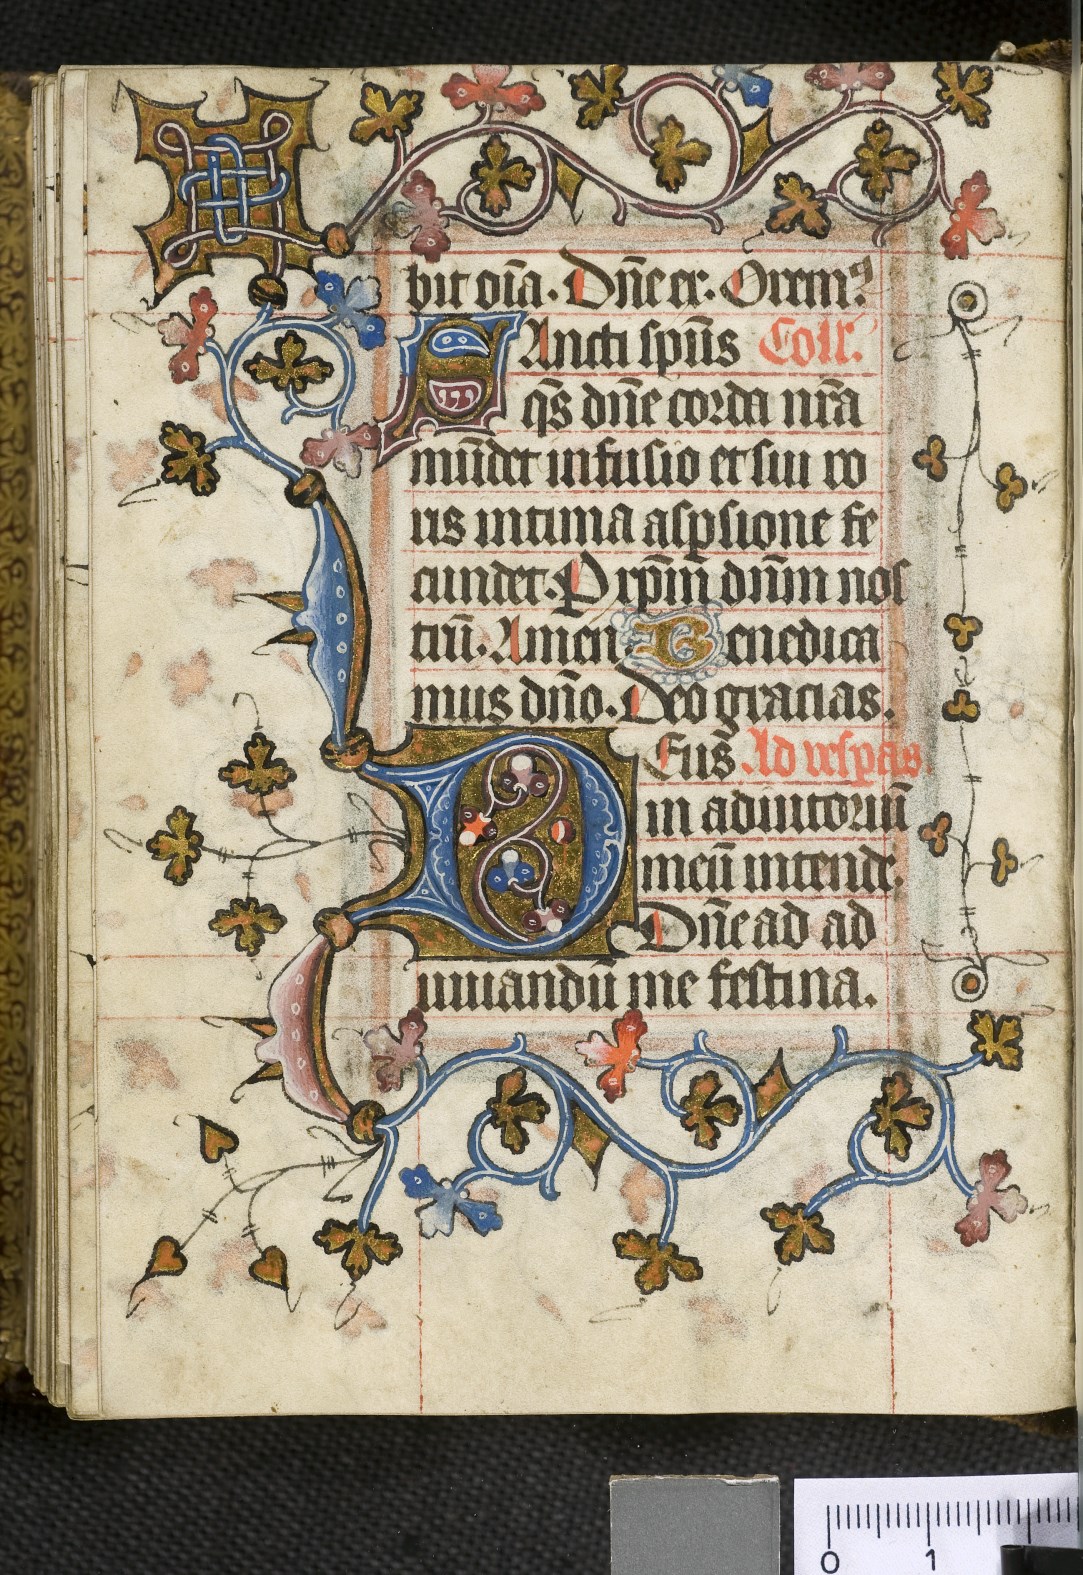 bit oīa. Dn̄e ex: Orem⁹
SAncti sp̄us Coll'.
q̄s dn̄e corda nr̄a
mūdet infusio et sui ro
ris intima asp̄sione fe
cundet. P xp̄m dn̄m nos
trū. Amen Benedica
mus dn̄o. Deo gracias.
DEus Ad vesp̄as.
in adiutoriū
meū intende.
Dn̄e ad ad
iuuandū me festina.
0 1